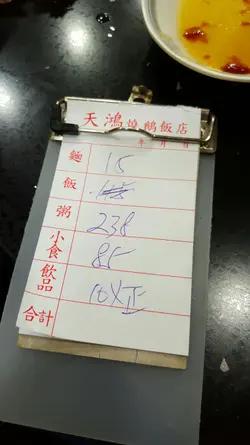 天鴻燒鵝飯店
年 月 日
麵 15
飯
粥 238
小食 85
飲品 10X正
合計